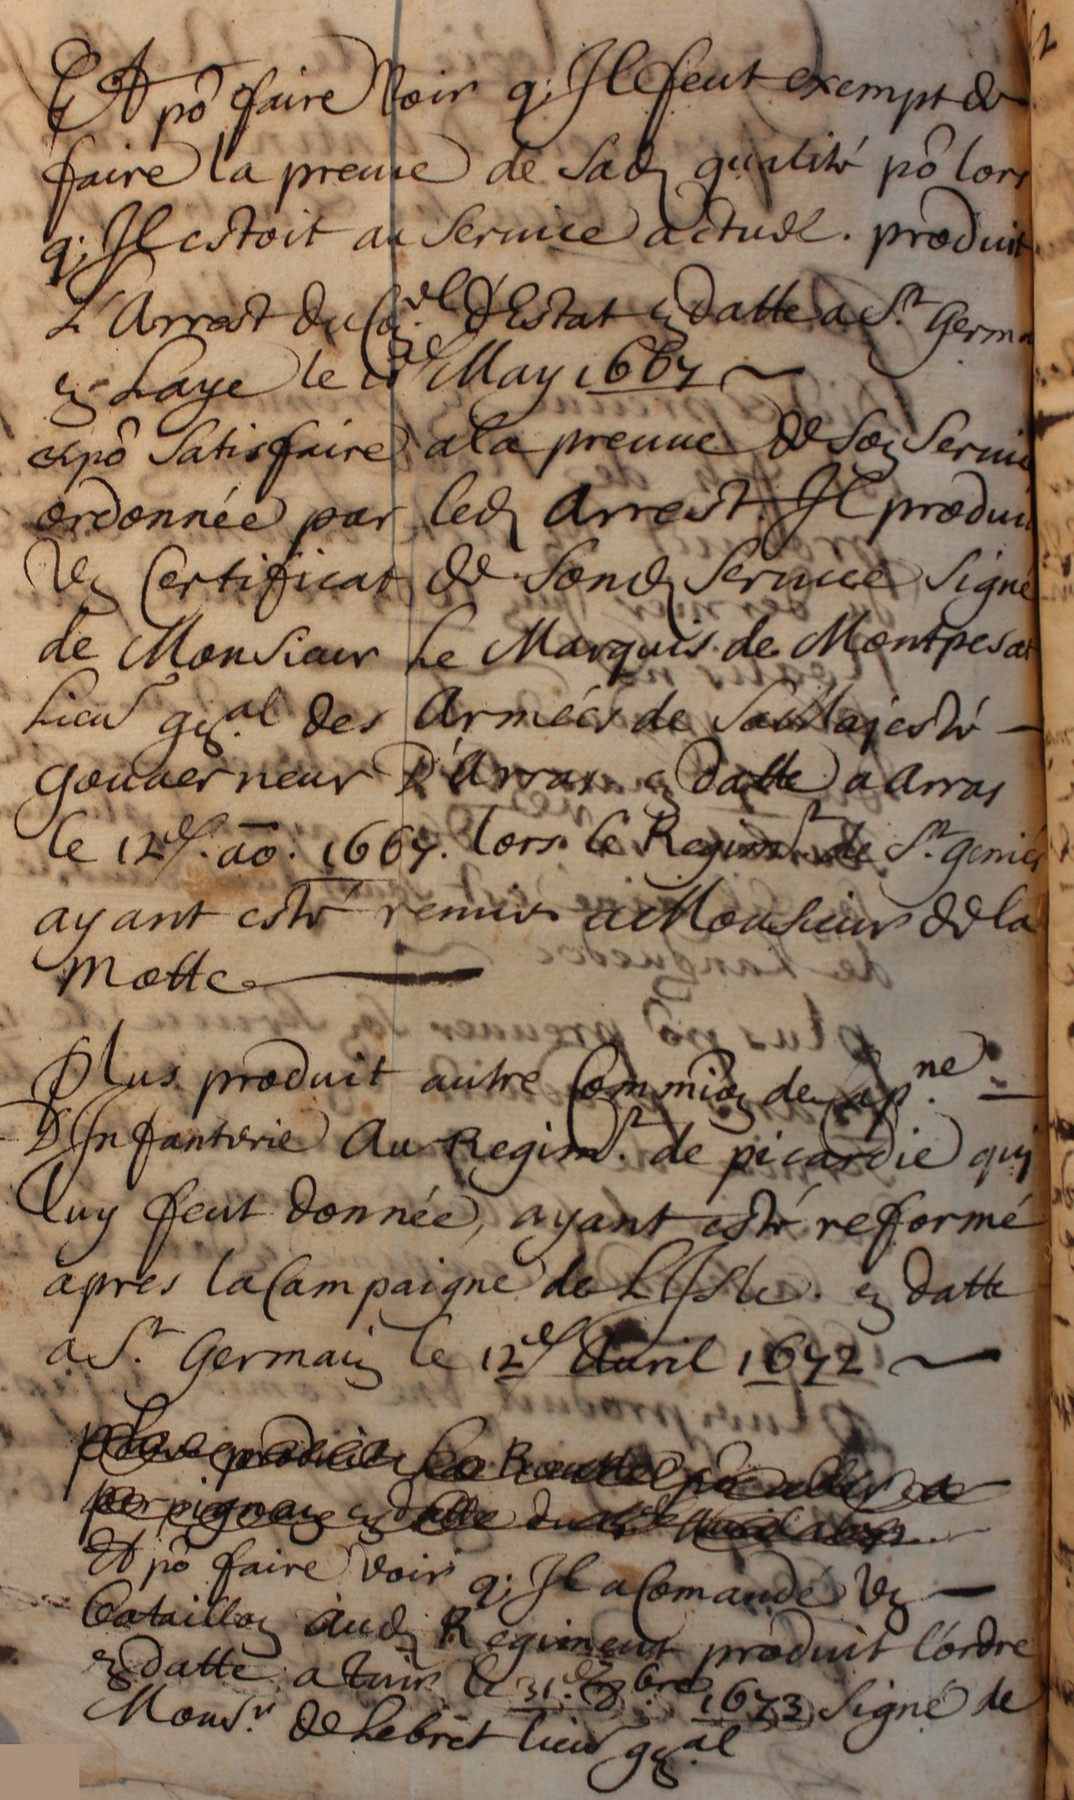 Et pô faire Voir q; Il feut exempt de
faire la preuue de Sad qualité pô lors
q; Il estoit au Seruice actuel. produit
L'Arrest du Con.el d'Estat en datte a S.t Germa
en Laye le May 1667
et pô Satisfaire a la preuue de Son Seruic
ordonnée par led Arrest. Il produit
Vn Certificat de Sond Seruice Signé
de Monsieur Le Marquis de Montpesat
Lieut gn.al des Armées de Sa Majesté
gouuerneur D'Arras en datte a Arras
le 12.e ao. 1667. lors le Regim.t de S.t geniés
ayant esté remis a Monsieur de la
Motte
Plus produit autre Commion de Cap.ne
D'Infanterie Au Regim.t de picardie qui
luy feut donnée, ayant esté reformé
apres la Campaigne de L'Isle. en datte
a S.t Germain le 12.e Auril 1672
plus produit la Routte pô aller a
perpignan en datte du
Et pô faire voir q; Il a Comandé Vn
Bataillon aud Regiment produit l'ordre
en datte a tuir le 31.e 1673 Signé de
Mons.r de Lebret lieut gn.al